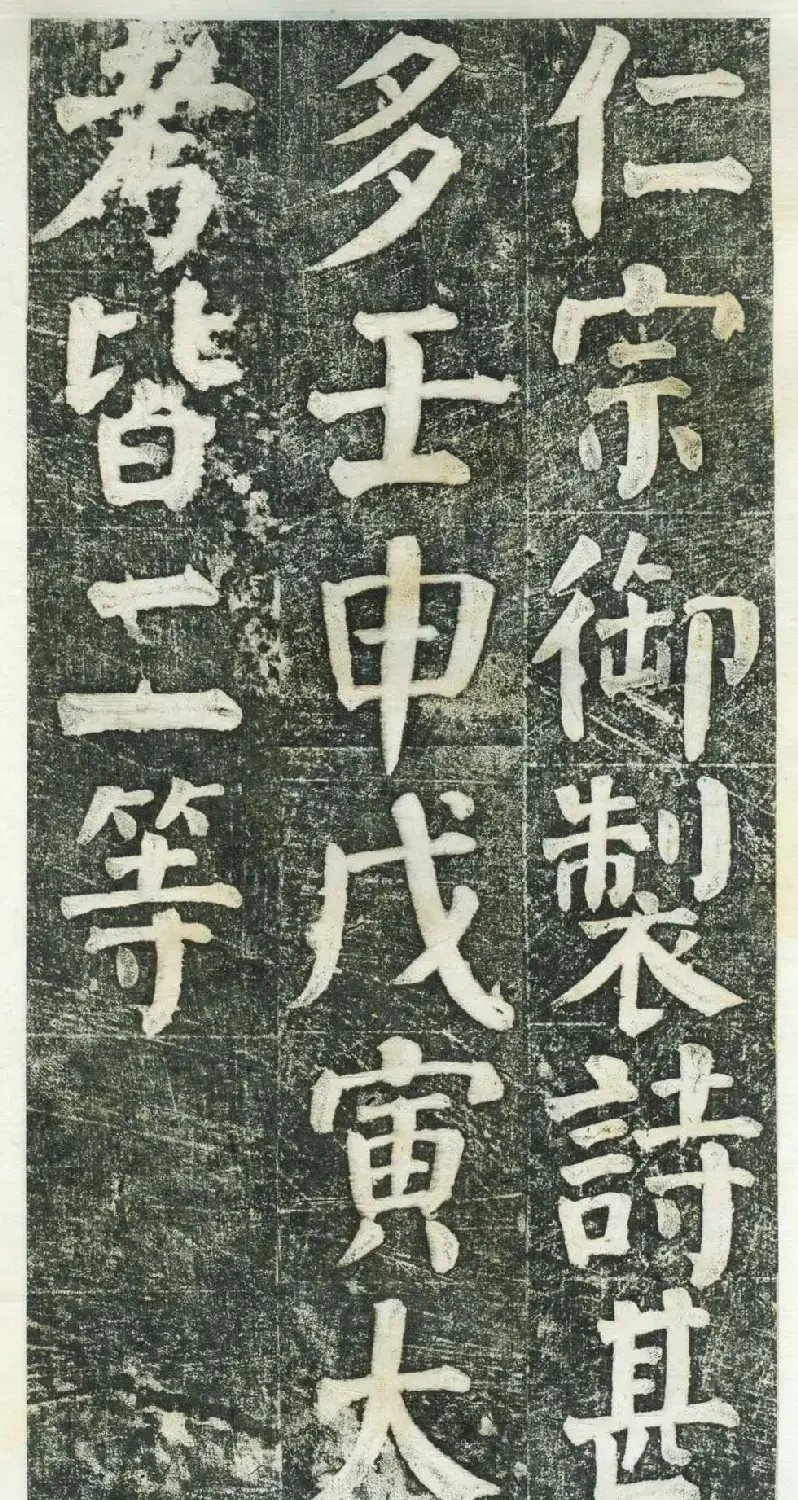 仁宗御製詩甚
多壬申戊寅大
考皆二等